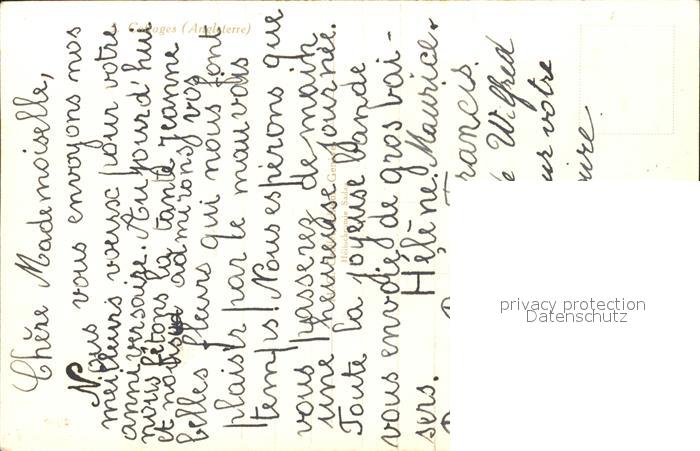 Chère Mademoiselle,
Nous vous envoyons nos
meilleurs voeux pour votre
anniversaire. Aujourd'hui
nous fêtons la tante Jeanne
et nous admirons vos
belles fleurs qui nous font
plaisir par le mauvais
temps! Nous espérons que
vous passerez demain
une heureuse journée.
Toute la joyeuse bande
vous envoie de gros bai-
sers. Hélène. Maurice.
Francis.
Wilfred
votre
Cottages (Angleterre)
privacy protection
Datenschutz